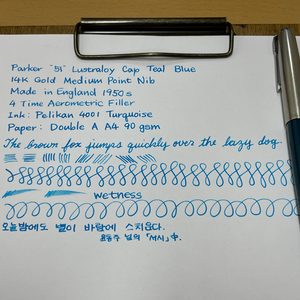 Parker "51" Lustraloy Cap Teal Blue
14K Gold Medium Point Nib
Made in England 1950s
4 Time Aerometric Filler
Ink: Pelikan 4001 Turquoise
Paper: Double A A4 90 gsm
The brown fox jumps quickly over the lazy dog.
wetness
오늘밤에도 별이 바람에 스치운다.
윤동주 님의 「서시」中.